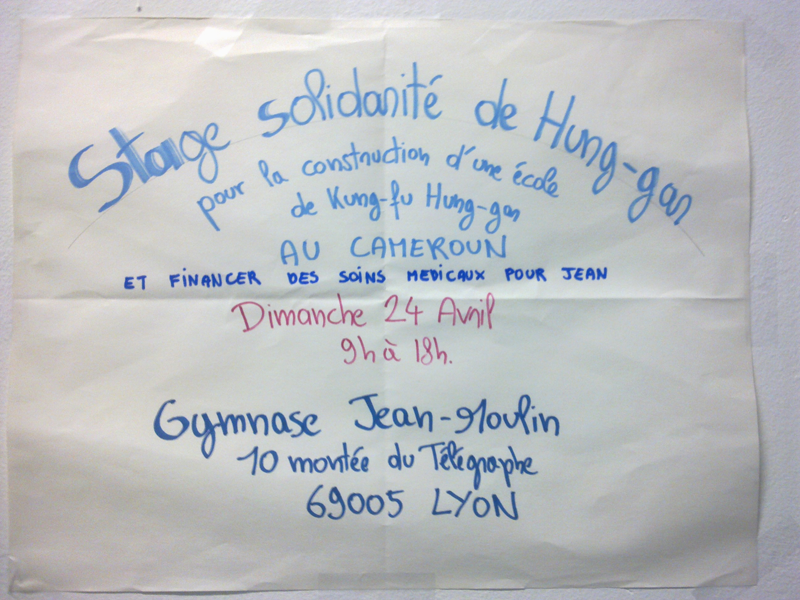 Stage solidarité de Hung-gar
pour la construction d'une école
de Kung-fu Hung-gar
AU CAMEROUN
ET FINANCER DES SOINS MEDICAUX POUR JEAN
Dimanche 24 Avril
9h à 18h.
Gymnase Jean-Moulin
10 montée du Télégraphe
69005 LYON